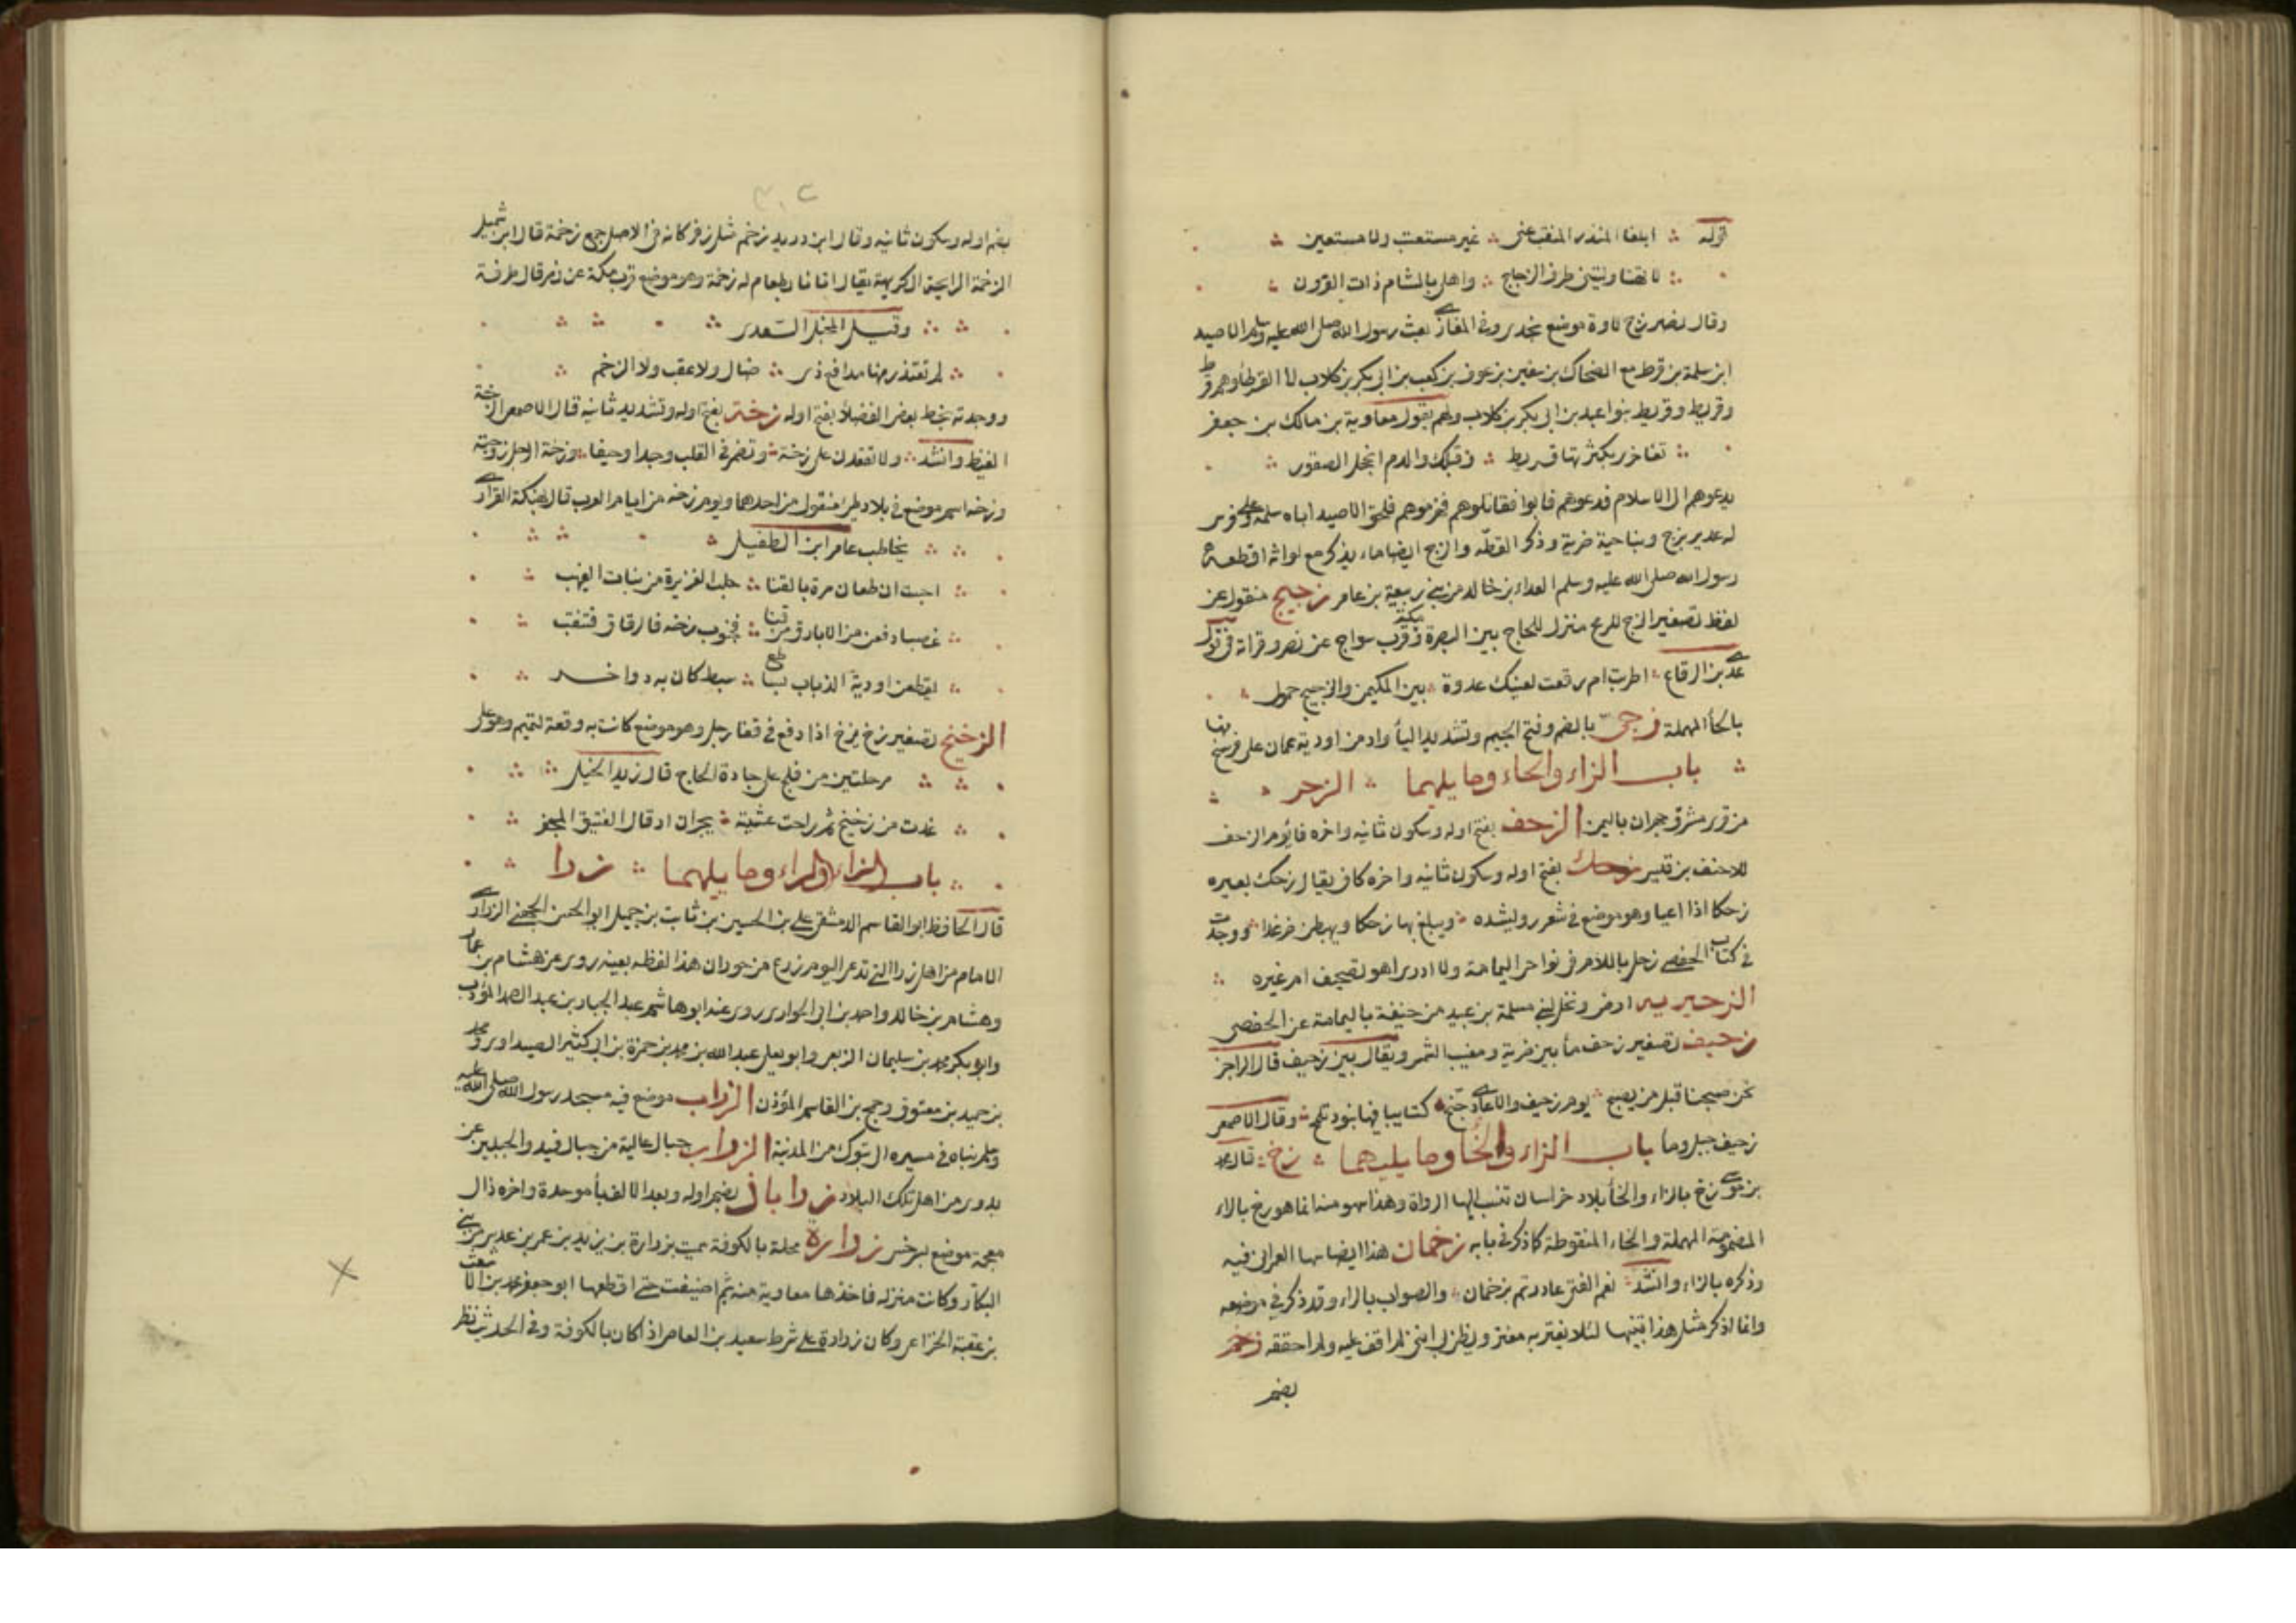 قوله ؞ ابلغا المنذر المنقب عني ؞ غير مستعتب ولا مستعين ؞
؞ لا تهنا وليتني طرف الزجاج ؞ واهلي بالشام ذات القرون ؞
وقال نصر زج لاوة موضع نجدي وفي المغازي بعث رسول الله صلى الله عليه وسلم الاصيد
ابن سلمة بن قرط مع الضحاك بن سفين بن عوف بن كعب بن ابي بكر بن كلاب الى القرطاء وهم قرط
وقريط وقريط بنو اعبد بن ابي بكر بن كلاب ولهم يقول معاوية بن مالك بن جعفر
؞ تفاخر بكثرتها قريط ؞ وقبلك والدم الحجل الصقور ؞
يدعوهم الى الاسلام فدعوهم فابوا فقاتلوهم فهزموهم فلحق الاصيد اباه سلمة على فرس
له غدير بزج وبناحية ضرية وذكر القصه والزج ايضا ماء يذكر مع لواثه اقطعه
رسول الله صلى الله عليه وسلم العداء بن خالد من بني ربيعة بن عامر زجيج منقول عن
لفظ تصغير الزج للرمح منزل للحاج بين البصرة ومكة قرب سواج عن نصر وقراته في قول
عدي بن الرقاع ؞ اطربت ام رفعت لعينك غدوة ؞ بين المكيمن والزجيج حمول ؞
بالحا المهملة زجي بالضم وفتح الجيم وتشديد اليا واد من اودية عمان على فرسخ منها
؞ باب الزاء والحاء وما يليهما ؞ الزحر ؞
من قرى مشرق جهران باليمن الزحف بفتح اوله وسكون ثانيه واخره فا يوم الزحف
للاحنف بن قيس زحك بفتح اوله وسكون ثانيه واخره كاف يقال زحك بعيره
زحكا اذا اعيا وهو موضع في شعر رويشد ؞ ويبلغ بها زحكا ويهبطن ضرغدا ؞ ووجدت
في كتاب الحفصي زحل باللام في نواحي اليمامة ولا ادري اهو تصحيف ام غيره ؞
الزحيريه ارض ونخل لبني مسلمة بن عبيد من حنيفة باليمامة عن الحفصي
زحيف تصغير زحف ما بين ضرية ومغيب الشمس ويقال بير زحيف قال الراجز
نحن صبحنا قبل من يصبح ؞ يوم زحيف والاعادي جنح ؞ كتايبا فيها بنود تلمح ؞ وقال الاصمعي
زحيف جبل وما باب الزاء والخا وما يليهما ؞ زخ ؞ قال محمد
بن موسى زخ بالزاء والخا بلاد خراسان تنسب اليها الرواة وهذا سهو منه انما هو رخ بالراء
المضمومة المهملة والخاء المنقوطة كما ذكر في بابه زخمان هذا ايضا سها العمراني فيه
وذكره بالزاء وانشد ؞ نعم الفتى غادرتم بزخمان ؞ والصواب بالراء وقد ذكر في موضعه
وانما اذكر مثل هذا تنبيها لئلا يغتر به مغتر ويظن بي انني لم اقف عليه ولم احققه زخم
بضم
بضم اوله وسكون ثانيه وقال ابن دريد زخم مثل زفر كانه في الاصل جمع زخمة قال ابن شميل
الزخمة الرايحة الكريهة يقال اتانا بطعام له زخمة وهو موضع قرب مكة عن نصر قال طرفة
؞ وقيل المخبل السعدي ؞
؞ لم تعتذر منها مدافع ذي ؞ ضال ولا عقب ولا الزخم ؞
ووجدته بخط بعض الفضلا بفتح اوله زخة بفتح اوله وتشديد ثانيه قال الاصمعي الزخة
الغيظ وانشد ؞ ولا تقعدن على زخة ؞ وتضمر في القلب وجدا وخيفا ؞ وزخة الرجل زوجته
وزخه اسم موضع في بلاد طيئ منقول من احدهما ويوم زخه من ايام العرب قال نهيكة الفزاري
؞ يخاطب عامر ابن الطفيل ؞
؞ احببت ان طعان مرة بالقنا ؞ حلب الغزيرة من بنات الغيهب ؞
؞ غصبا دفعن من الابارق من قنا ؞ فجنوب زخه فالرقاق فتنقب ؞
؞ يقطعن اودية الذباب ؞ سبط كان به دواخن ؞
الزخيخ تصغير زخ يزخ اذا دفع في قفا رجل وهو موضع كانت به وقعة لتميم وهو على
؞ مرحلتين من فلج على جادة الحاج قال زيد الخيل ؞
؞ غدت من زخيخ ثم راحت عشية ؞ بجران ارقال الفنيق المجفر ؞
؞ باب الزاء والراء وما يليهما ؞ زرا ؞
قال الحافظ ابو القاسم الدمشقي علي بن الحسين بن ثابت بن جميل ابو الحسن الجهني الزرادي
الامام من اهل زرا التي تدعى اليوم زرع من حوران هذا لفظه بعينه روى عن هشام بن عمار
وهشام بن خالد واحمد بن ابي الحواري روى عنه ابو هاشم عبد الجبار بن عبد الصمد المؤدب
وابو بكر محمد بن سليمان الربعي وابو يعلى عبد الله بن محمد بن حمزة بن ابي كثير الصيداوي ومحمد
بن حميد بن معتوق وجمح بن القاسم المؤذن الزراب موضع فيه مسجد رسول الله صلى الله عليه
وسلم بناه في مسيره الى تبوك من المدينة الزراب جبال عالية من جبال فيد والجبلين عن
بدوي من اهل تلك البلاد زراباذ بضم اوله وبعد الالف با موحدة واخره ذال
معجمة موضع بسرخس زرارة محلة بالكوفة سميت بزرارة بن يزيد بن عمر بن عدس من بني
البكار وكانت منزله فاخذها معاوية منه ثم اضيفت حتى اقطعها ابو جعفر محمد بن الاشعث
بن عقبة الخزاعي وكان زرارة على شرط سعيد بن العاص اذا كان بالكوفة وفي الحديث نظر